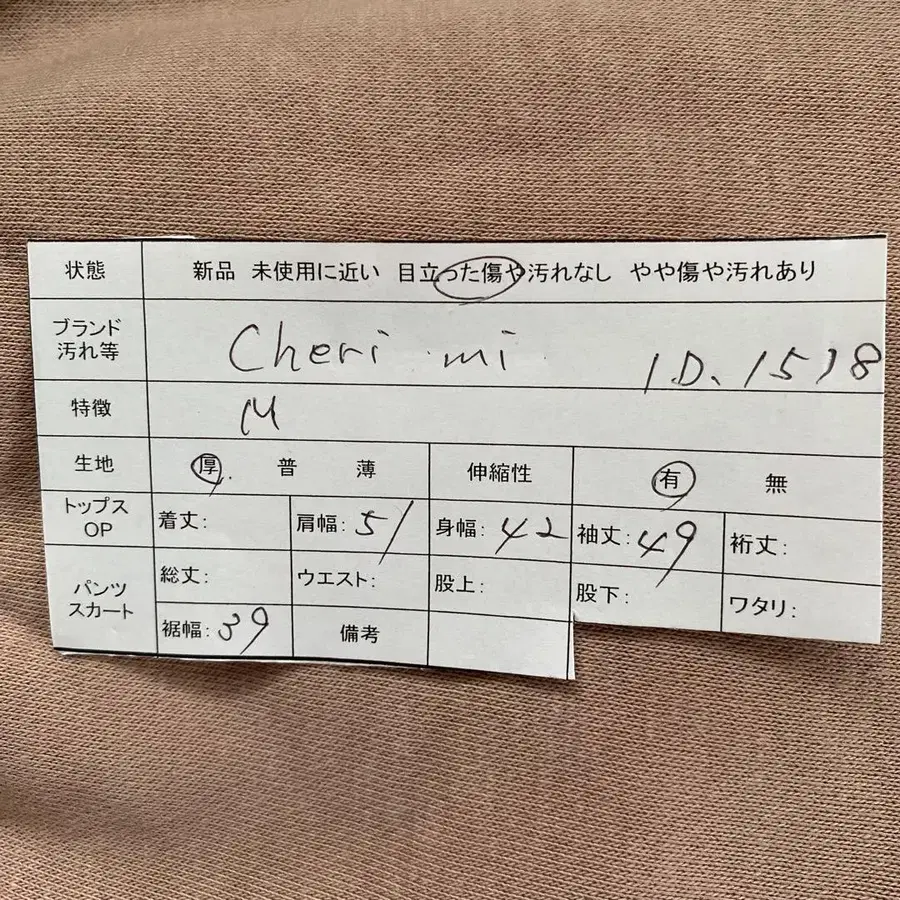 状態 新品 未使用に近い 目立った傷や汚れなし やや傷や汚れあり
ブランド
汚れ等 Cheri mi ID.1518
特徴 M
生地 厚 普 薄 伸縮性 有 無
トップス
OP 着丈: 肩幅: 51 身幅: 42 袖丈: 49 裄丈:
パンツ
スカート 総丈: ウエスト: 股上: 股下: ワタリ:
裾幅: 39 備考